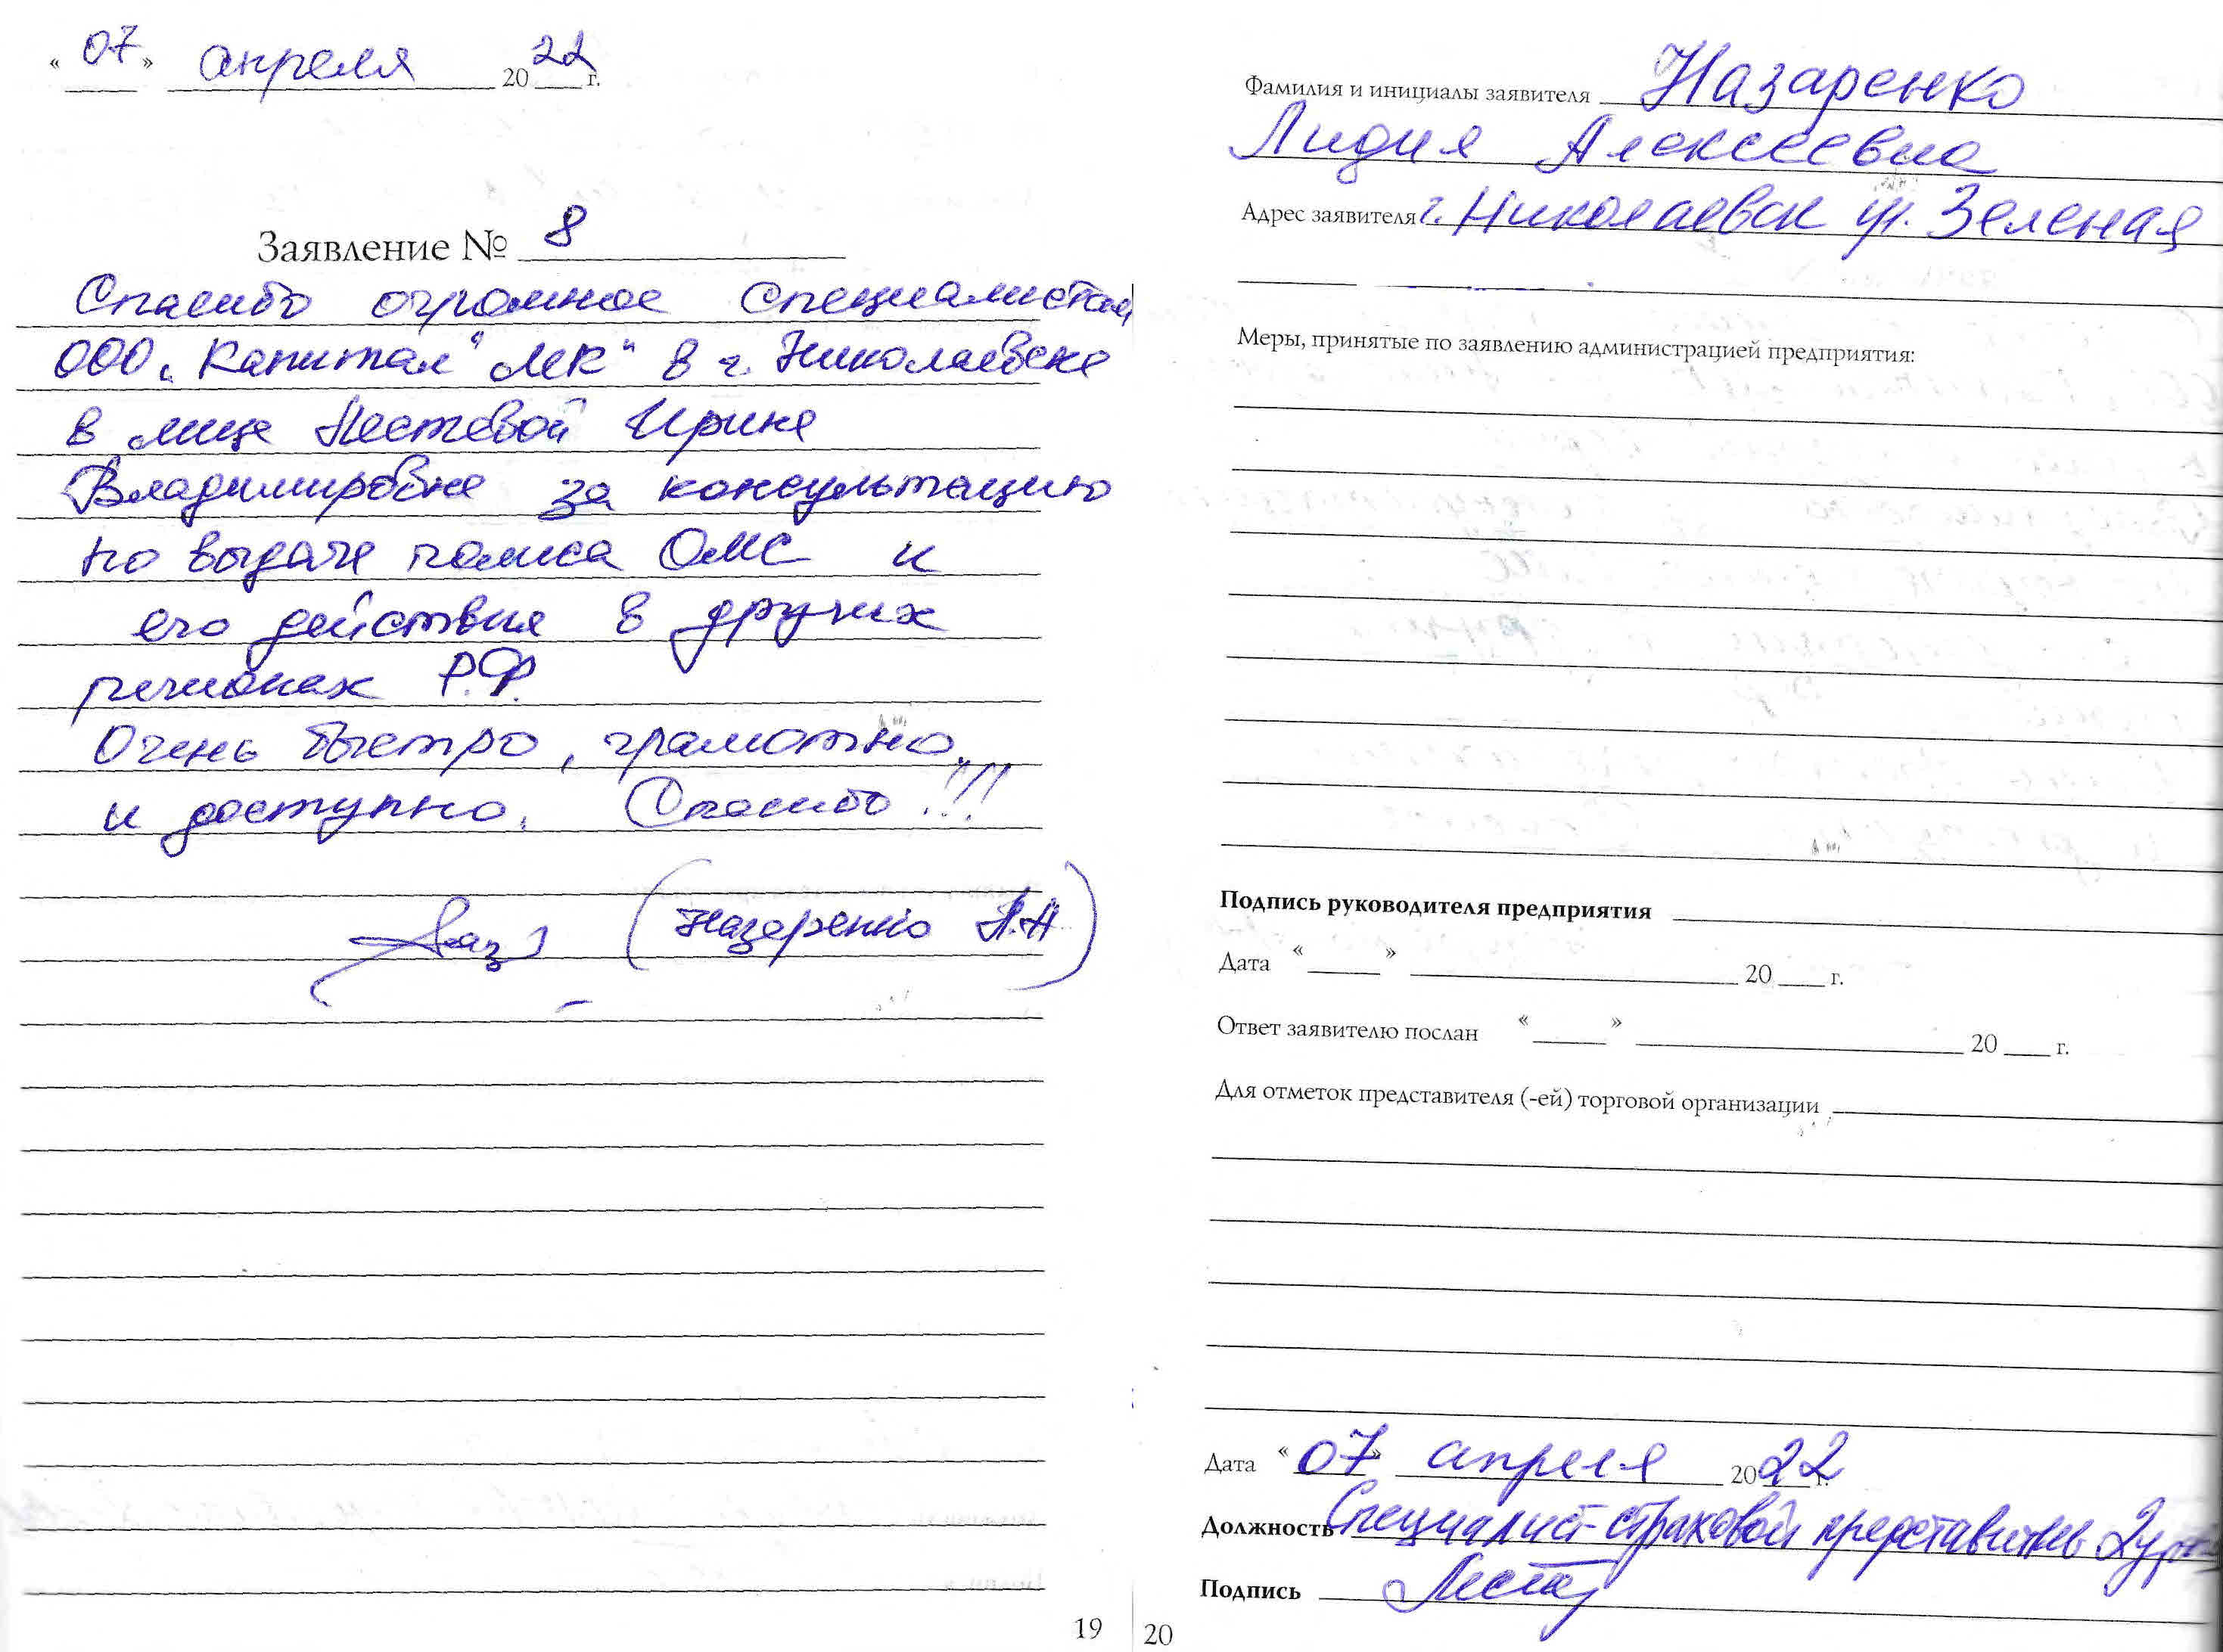 « 07 » апреля 2022 г.
Заявление № 8
Спасибо огромное специалистам
ООО „Капитал" МС" в г. Николаевске
в лице Нестевой Ирине
Владимировне за консультацию
по выдаче полиса ОМС и
его действия в других
регионах Р.Ф.
Очень быстро, грамотно,
и доступно. Спасибо!!!
(Назаренко Л.А.)
19
Фамилия и инициалы заявителя Назаренко
Лидия Алексеевна
Адрес заявителя г. Николаевск ул. Зеленая
Меры, принятые по заявлению администрацией предприятия:
Подпись руководителя предприятия
Дата « » 20 г.
Ответ заявителю послан « » 20 г.
Для отметок представителя (-ей) торговой организации
Дата « 07 » апреля 2022 г.
Должность Специалист-страховой представитель 2 ур
Подпись
20